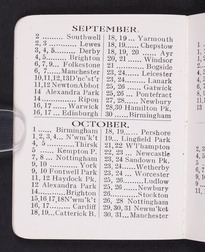 SEPTEMBER.
2 ........ Southwell
2, 3 ........... Lewes
3, 4, 5 ....... Derby
4, 5 ........ Brighton
6, 7, 9... Folkestone
6, 7 ...... Manchester
10,11,12,13D'nc'st'r
11,12 Newton Abbot
14 Alexandra Park
14 ............ Ripon
16, 17 ...... Warwick
16, 17 ... Edinburgh
18, 19 ... Yarmouth
18, 19 ... Chepstow
18, 19, 20 ...... Ayr
20, 21 ...... Windsor
21 ........ Bogside
23, 24 ...... Leicester
23, 24 ........ Lanark
25, 26 ..... Gatwick
25, 26 ... Pontefract
27, 28 ..... Newbury
28, 30 Hamilton Pk.
30 ...... Birmingham
OCTOBER.
1 ...... Birmingham
1, 2, 3, 4, N'wm'k't
3, 4 .......... Thirsk
5 ...... Kempton P.
7, 8 ... Nottingham
9, 10 .......... York
9, 10 Fontwell Park
11, 12 Haydock Pk.
12 Alexandra Park
14
15,16,17,18N'wm'k't
16, 17 ...... Cardiff
18, 19...Catterick B.
18, 19 ... Pershore
19... Lingfield Park
21, 22 W'l'hampton
22, 23 ... Newcastle
23, 24 Sandown Pk.
23, 24 ... Wetherby
23, 24 ... Worcester
25, 26 ...... Ludlow
25, 26 ..... Newbury
26 ......... Stockton
26, 28 Nottingham
29, 30, 31 Newm'k't
30, 31... Manchester